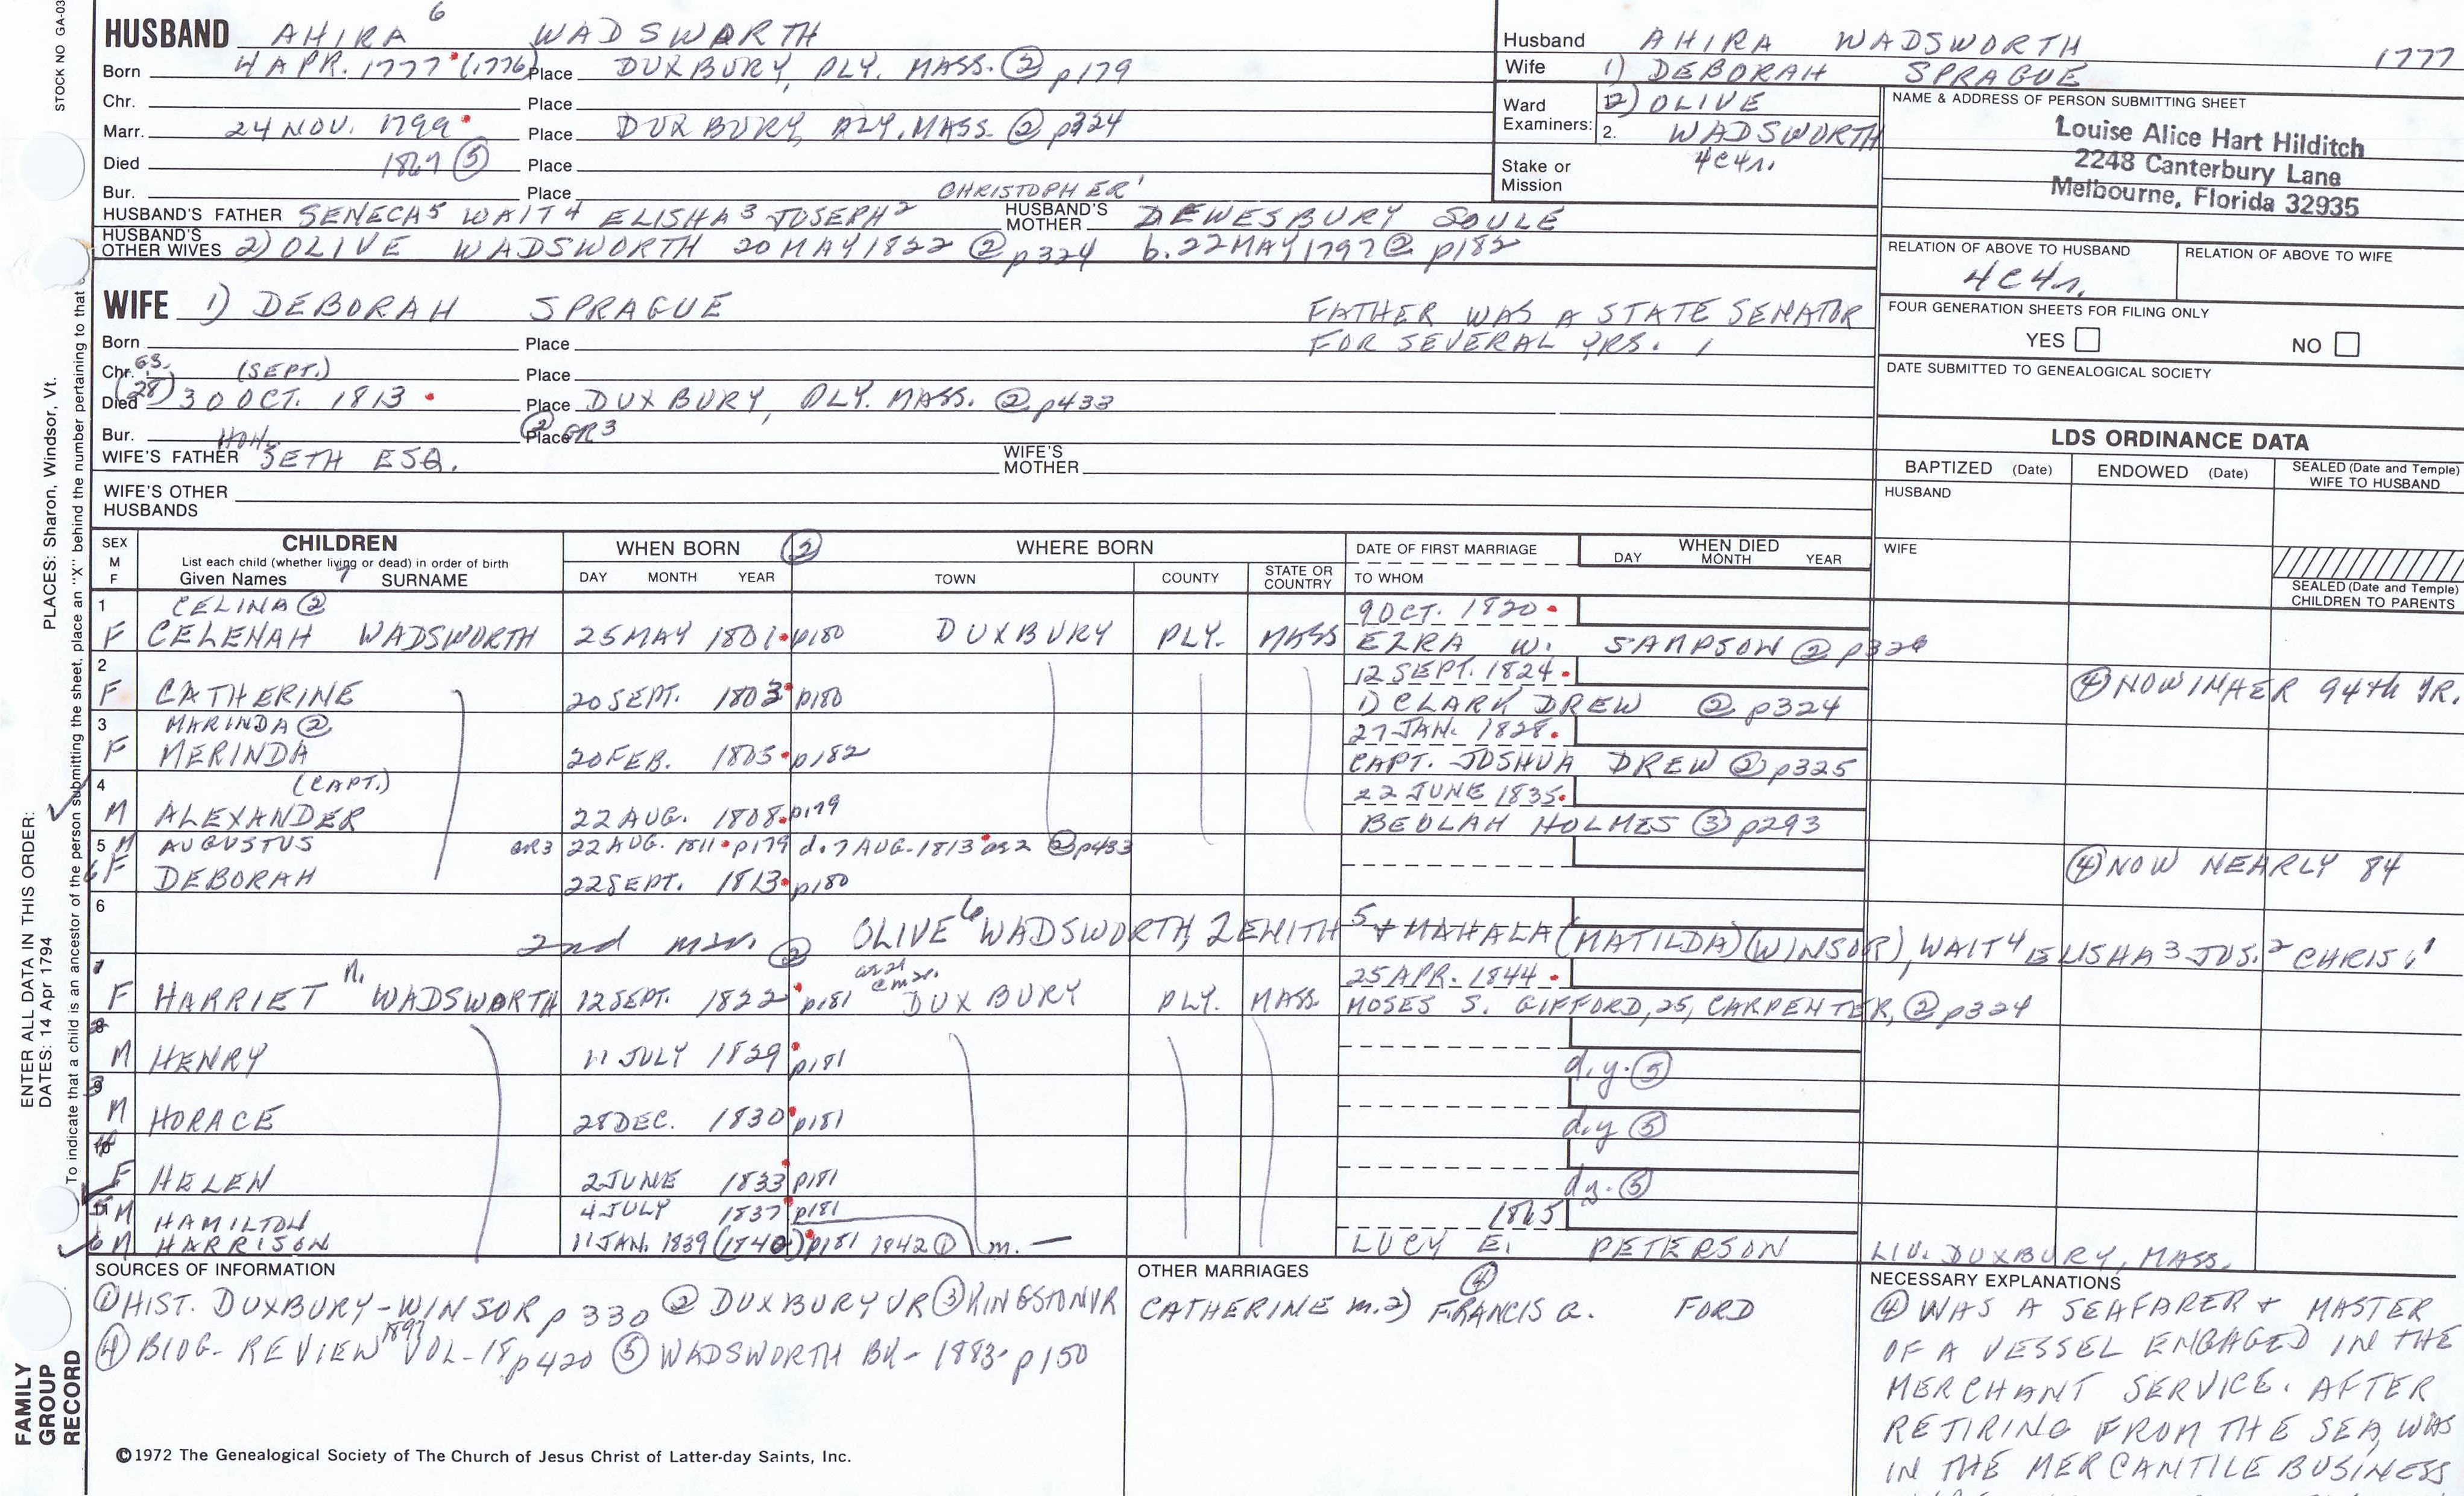 STOCK NO GA-03
HUSBAND AHIRA 6 WADSWORTH
Born 4 APR. 1777 (1776) Place DUXBURY, PLY. MASS. ② p179
Chr. Place
Marr. 24 NOV. 1799 Place DUXBURY, PLY. MASS. ② p324
Died ⑤ Place
Bur. Place
CHRISTOPHER 1
HUSBAND'S FATHER SENECA 5 WAIT 4 ELISHA 3 JOSEPH 2 HUSBAND'S MOTHER DEWESBURY SOULE
HUSBAND'S OTHER WIVES 2) OLIVE WADSWORTH 20 MAY 1822 ② p324 b. 22 MAY 1797 ② p182
Husband AHIRA WADSWORTH 1777
Wife 1) DEBORAH SPRAGUE
Ward Examiners: 2) OLIVE
2. WADSWORTH
Stake or Mission 4C4r.
NAME & ADDRESS OF PERSON SUBMITTING SHEET
Louise Alice Hart Hilditch
2248 Canterbury Lane
Melbourne, Florida 32935
RELATION OF ABOVE TO HUSBAND RELATION OF ABOVE TO WIFE
4C4r.
FOUR GENERATION SHEETS FOR FILING ONLY
YES NO
DATE SUBMITTED TO GENEALOGICAL SOCIETY
WIFE 1) DEBORAH SPRAGUE FATHER WAS A STATE SENATOR
Born Place FOR SEVERAL YRS. 1
Chr. G.S. (SEPT.) Place
Died (28) 30 OCT. 1813 Place DUXBURY, PLY. MASS. ② p433
Bur. Place ② GR3
HON.
WIFE'S FATHER SETH ESQ. WIFE'S MOTHER
WIFE'S OTHER HUSBANDS
LDS ORDINANCE DATA
BAPTIZED (Date) ENDOWED (Date) SEALED (Date and Temple) WIFE TO HUSBAND
HUSBAND
WIFE
SEALED (Date and Temple) CHILDREN TO PARENTS
SEX M F CHILDREN WHEN BORN ② WHERE BORN DATE OF FIRST MARRIAGE WHEN DIED
List each child (whether living or dead) in order of birth
Given Names 7 SURNAME DAY MONTH YEAR TOWN COUNTY STATE OR COUNTRY TO WHOM DAY MONTH YEAR
1 CELINA ② 9 OCT. 1820
F CELENAH WADSWORTH 25 MAY 1801 p180 DUXBURY PLY. MASS EZRA W. SAMPSON ②
2 12 SEPT. 1824
F CATHERINE 20 SEPT. 1803 p180 1) CLARK DREW ② p324 ④ NOW IN HER 94th YR.
3 MARINDA ② 27 JAN. 1828
F MERINDA 20 FEB. 1805 p182 CAPT. JOSHUA DREW ② p325
4 (CAPT.) 22 JUNE 1835
M ALEXANDER 22 AUG. 1808 p179 BEULAH HOLMES ③ p293
5 M AUGUSTUS GR3 22 AUG. 1811 p179 d. 7 AUG. 1813 ae 2 ② p433
6 F DEBORAH 22 SEPT. 1813 p180 ④ NOW NEARLY 84
6 2nd mar. ② OLIVE 6 WADSWORTH, ZENITH 5 + MAHALA (MATILDA) (WINSOR), WAIT 4 ELISHA 3 JOS. 2 CHRIS. 1
1 25 APR. 1844
F HARRIET N. WADSWORTH 12 SEPT. 1822 p181 DUXBURY PLY. MASS. MOSES S. GIFFORD, 25, CARPENTER, ② p324
M HENRY 11 JULY 1829 p181 d.y. ⑤
M HORACE 28 DEC. 1830 p181 d.y ⑤
F HELEN 2 JUNE 1833 p181 d.y. ⑤
5 M HAMILTON 4 JULY 1837 p181 1865
6 M HARRISON 11 JAN. 1839 (1840) p181 1842 ① m. — LUCY E. PETERSON LIV. DUXBURY, MASS.
SOURCES OF INFORMATION
① HIST. DUXBURY - WINSOR p 330 ② DUXBURY VR ③ KINGSTON VR
④ BIOG. REVIEW 1897 VOL-18 p420 ⑤ WADSWORTH BK - 1883 - p150
©1972 The Genealogical Society of The Church of Jesus Christ of Latter-day Saints, Inc.
OTHER MARRIAGES
CATHERINE m. 2) ④ FRANCIS G. FORD
NECESSARY EXPLANATIONS
④ WAS A SEAFARER + MASTER
OF A VESSEL ENGAGED IN THE
MERCHANT SERVICE. AFTER
RETIRING FROM THE SEA, WAS
IN THE MERCANTILE BUSINESS
FAMILY GROUP RECORD
ENTER ALL DATA IN THIS ORDER:
DATES: 14 Apr 1794
PLACES: Sharon, Windsor, Vt.
To indicate that a child is an ancestor of the person submitting the sheet, place an "X" behind the number pertaining to that